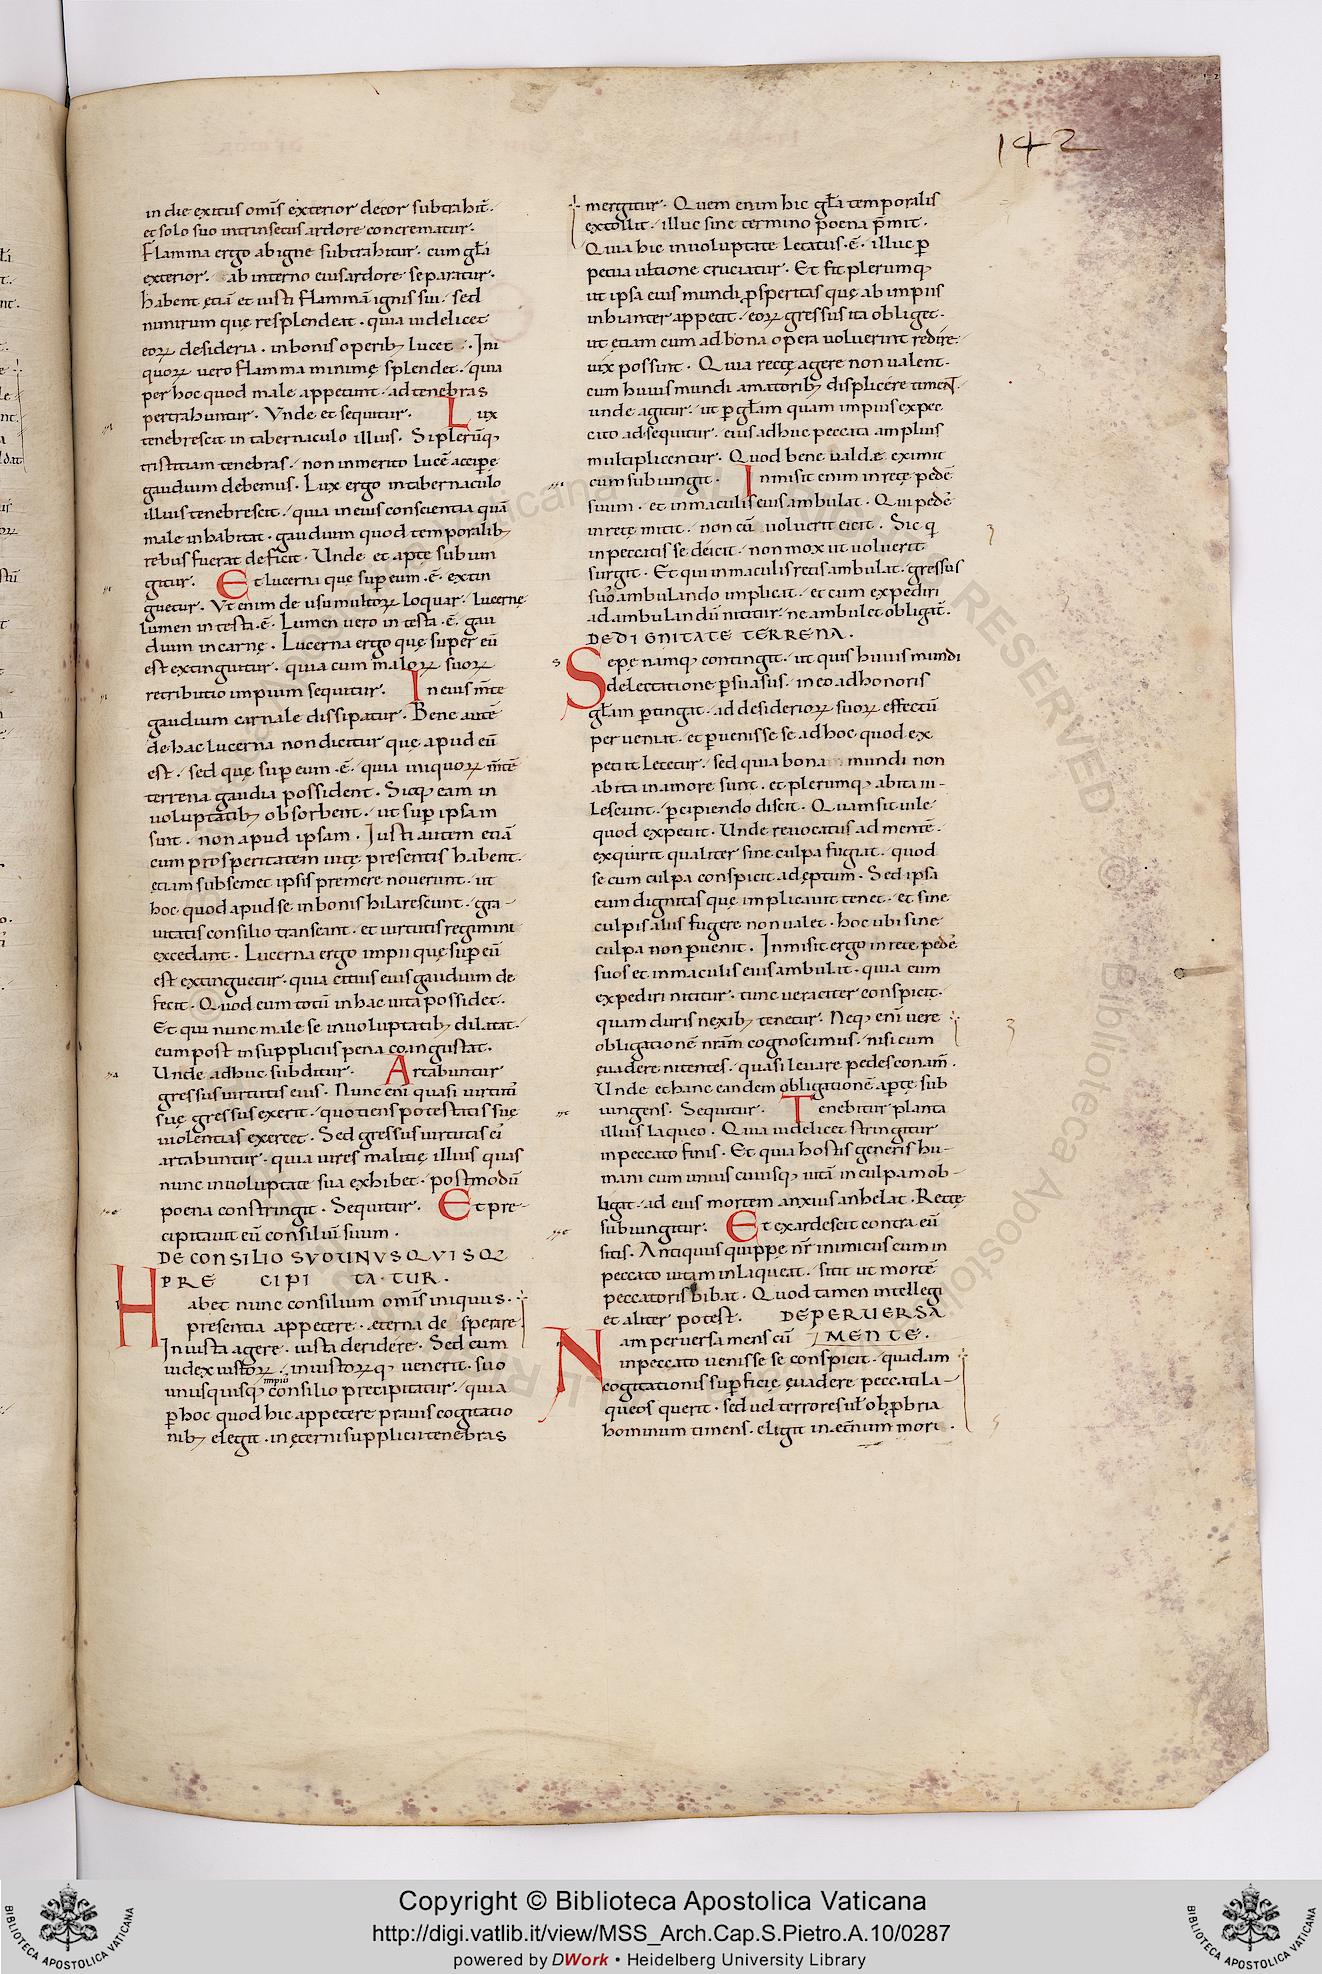 142
in die exitus omīs exterior decor subtrahit̄.
et solo suo intrinsecus ardore concrematur.
Flamma ergo ab igne subtrahitur. cum gl̄a
exterior. ab interno eius ardore separatur.
habent ęciā et iusti flammā ignis sui. sed
nimirum quę resplendeat. quia videlicet
eoꝝ desideria. in bonis operibꝫ lucet. Ini
quoꝝ vero flamma minimę splendet. quia
per hoc quod male appetunt. ad tenebras
pertrahuntur. Vnde et sequitur. Lux
tenebrescit in tabernaculo illius. Si plerūqꝫ
tristitiam tenebras. non inmerito lucē accipe
gaudium debemus. Lux ergo in tabernaculo
illius tenebrescit. quia in eius conscientia quā
male inhabitat. gaudium quod temporalibꝫ
rebus fuerat deficit. Unde et aptę subiun
gitur. Et lucerna quę sup̄ eum .ē. extin
guetur. Vt enim de usu multoꝝ loquar. lucerne
lumen in testa .ē. Lumen vero in testa .ē. gau
dium in carne. Lucerna ergo quę super eū
est extinguitur. quia cum maloꝝ suoꝝ
retributio impium sequitur. In eius m̄te
gaudium carnale dissipatur. Bene autē
de hac lucerna non dicitur quę apud eū
est. sed quę sup̄ eum .ē. quia iniquoꝝ m̄tē
terrena gaudia possident. Sicqꝫ eam in
voluptatibꝫ obsorbent. ut sup̄ ipsam
sint. non apud ipsam. Iusti autem etiā
cum prosperitatem vitę presentis habent.
ętiam sub semet ipsis premere noverunt. ut
hoc quod apud se in bonis hilarescunt. gra-
vitatis consilio transeant. et virtutis regimini
excedant. Lucerna ergo impii quę sup̄ eū
est extinguetur. quia citius eius gaudium de
fecit. Quod eum totū in hac vita possidet.
Et qui nunc male se in voluptatibꝫ dilatat.
eum post in suppliciis pena coangustat.
Unde adhuc subditur. Artabuntur
gressus virtutis eius. Nunc enī quasi virtutū
suę gressus exerit. quotiens potestatis suę
violentias exercet. Sed gressus virtutis ei'
artabuntur. quia vires malitię illius quas
nunc in voluptate sua exhibet. postmodū
poena constringit. Sequitur. Et pre-
cipitavit eū consiliū suum.
DE CONSILIO SVO UNUSQVISQꝪ
PRECIPITATUR.
Habet nunc consilium omīs iniquus.
presentia appetere. eterna despetere
Iniusta agere. iusta deridere. Sed cum
iudex iustoꝝ. iniustoꝝqꝫ venerit. suo
impius
unusquisqꝫ consilio precipitatur. quia
p̄ hoc quod hic appetere pravis cogitatio
nibꝫ elegit. in ęterni supplicii tenebras
mergitur. Quem enim hic gl̄a temporalis
extollit. illuc sine termino poena p̄mit.
Quia hic in voluptate letatus .ē. illuc p̄
petua ultione cruciatur. Et fit plerumqꝫ
ut ipsa eius mundi p̄speritas quę ab impiis
inhianter appetit. eoꝝ gressus ita obliget.
ut ętiam cum ad bona opera voluerint redire.
vix possint. Quia rectę agere non valent.
cum huius mundi amatoribꝫ displicere timen̄.
unde agitur. ut p̄ gl̄am quam impius expec
cito adsequitur. eius adhuc peccata amplius
multiplicentur. Quod bene valdæ eximit
cum subiungit. Inmisit enim in retę pedē
suum. et in maculis eius ambulat. Qui pedē
in retę mittit. non cū voluerit eicit. Sic q̄
in peccatis se deicit. non mox ut voluerit
surgit. Et qui in maculis retis ambulat. gressus
suos ambulando implicat. et cum expediri
ad ambulandū nititur. ne ambulet obligat̄.
DE DIGNITATE TERRENA.
Sepę namqꝫ contingit. ut quis huius mundi
delectatione p̄suasus. in eo ad honoris
gl̄am p̄tingat. ad desiderioꝝ suoꝝ effectū
perveniat. et p̄venisse se ad hoc quod ex
petiit letetur. sed quia bona mundi non
abita in amore sunt. et plerumqꝫ abita vi-
lescunt. p̄cipiendo discit. Quam sit vile
quod expetiit. Unde revocatus ad mentē.
exquirit qualiter sine culpa fugiat. quod
se cum culpa conspicit adeptum. Sed ipsa
eum dignitas quę implicavit tenet. et sine
culpis aliis fugere non valet. hoc ubi sine
culpa non p̄venit. Inmisit ergo in rete pedē
suos et in maculis eius ambulat. quia cum
expediri nititur. tunc veraciter conspicit.
quam duris nexibꝫ tenetur. Neqꝫ enī vere
obligationē nr̄am cognoscimus. nisi cum
ęvadere nitentes. quasi levare pedes conam̄.
Unde et hanc eandem obligationē aptę sub
iungens. Sequitur. Tenebitur planta
illius laqueo. Quia videlicet stringitur
in peccato finis. Et quia hostis generis hu-
mani cum unius cuiusqꝫ vitā in culpam ob-
ligat. ad eius mortem anxius anhelat. Rectę
subiungitur. Et exardescit contra eū
sitis. Antiquus quippe nr̄ inimicus cum in
peccato vitam inlaqueat. sitit ut mortē
peccatoris bibat. Quod tamen intellegi
et aliter potest. DE PERVERSA
Nam perversa mens cū MENTE.
in peccato venisse se conspicit. quadam
cogitationis sup̄ficię ęvadere peccati la-
queos querit. sed vel terrores ul̄ obp̄bria
hominum timens. eligit in etn̄um mori.
Copyright © Biblioteca Apostolica Vaticana
http://digi.vatlib.it/view/MSS_Arch.Cap.S.Pietro.A.10/0287
powered by DWork • Heidelberg University Library